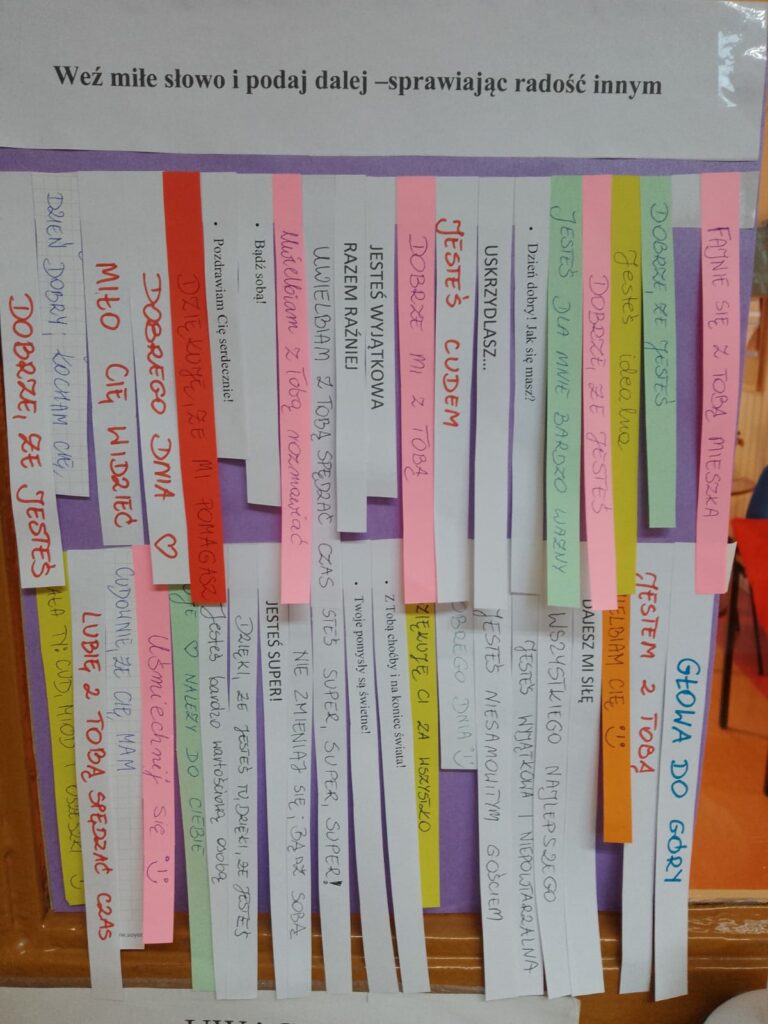 Weź miłe słowo i podaj dalej –sprawiając radość innym
DOBRZE, ŻE JESTEŚ
DZIEŃ DOBRY, KOCHAM CIĘ,
MIŁO CIĘ WIDZIEĆ
DOBREGO DNIA ♡
DZIĘKUJĘ, ŻE MI POMAGASZ
• Pozdrawiam Cię serdecznie!
• Bądź sobą!
Uwielbiam z Tobą rozmawiać
UWIELBIAM Z TOBĄ SPĘDZAĆ CZAS
RAZEM RAŹNIEJ
JESTEŚ WYJĄTKOWA
DOBRZE MI Z TOBĄ
JESTEŚ CUDEM
USKRZYDLASZ...
• Dzień dobry! Jak się masz?
JESTEŚ DLA MNIE BARDZO WAŻNY
DOBRZE, ŻE JESTEŚ
Jesteś idealna
DOBRZE, ŻE JESTEŚ
FAJNIE SIĘ Z TOBĄ MIESZKA
TI: CUD, MIÓD I ORZESZKI
LUBIĘ Z TOBĄ SPĘDZAĆ CZAS
CUDOWNIE, ŻE CIĘ MAM
Uśmiechnij się
♡ NALEŻY DO CIEBIE
Jesteś bardzo wartościową osobą
DZIĘKI, ŻE JESTEŚ TU, DZIĘKI, ŻE JESTEŚ
JESTEŚ SUPER!
NIE ZMIENIAJ SIĘ, BĄDŹ SOBĄ
STEŚ SUPER, SUPER, SUPER!
• Twoje pomysły są świetne!
• Z Tobą choćby i na koniec świata!
ZIĘKUJĘ CI ZA WSZYSTKO
OBREGO DNIA
JESTEŚ NIESAMOWITYM GOŚCIEM
JESTEŚ WYJĄTKOWA I NIEPOWTARZALNA
WSZYSTKIEGO NAJLEPSZEGO
DAJESZ MI SIŁĘ
IELBIAM CIĘ
JESTEM Z TOBĄ
GŁOWA DO GÓRY